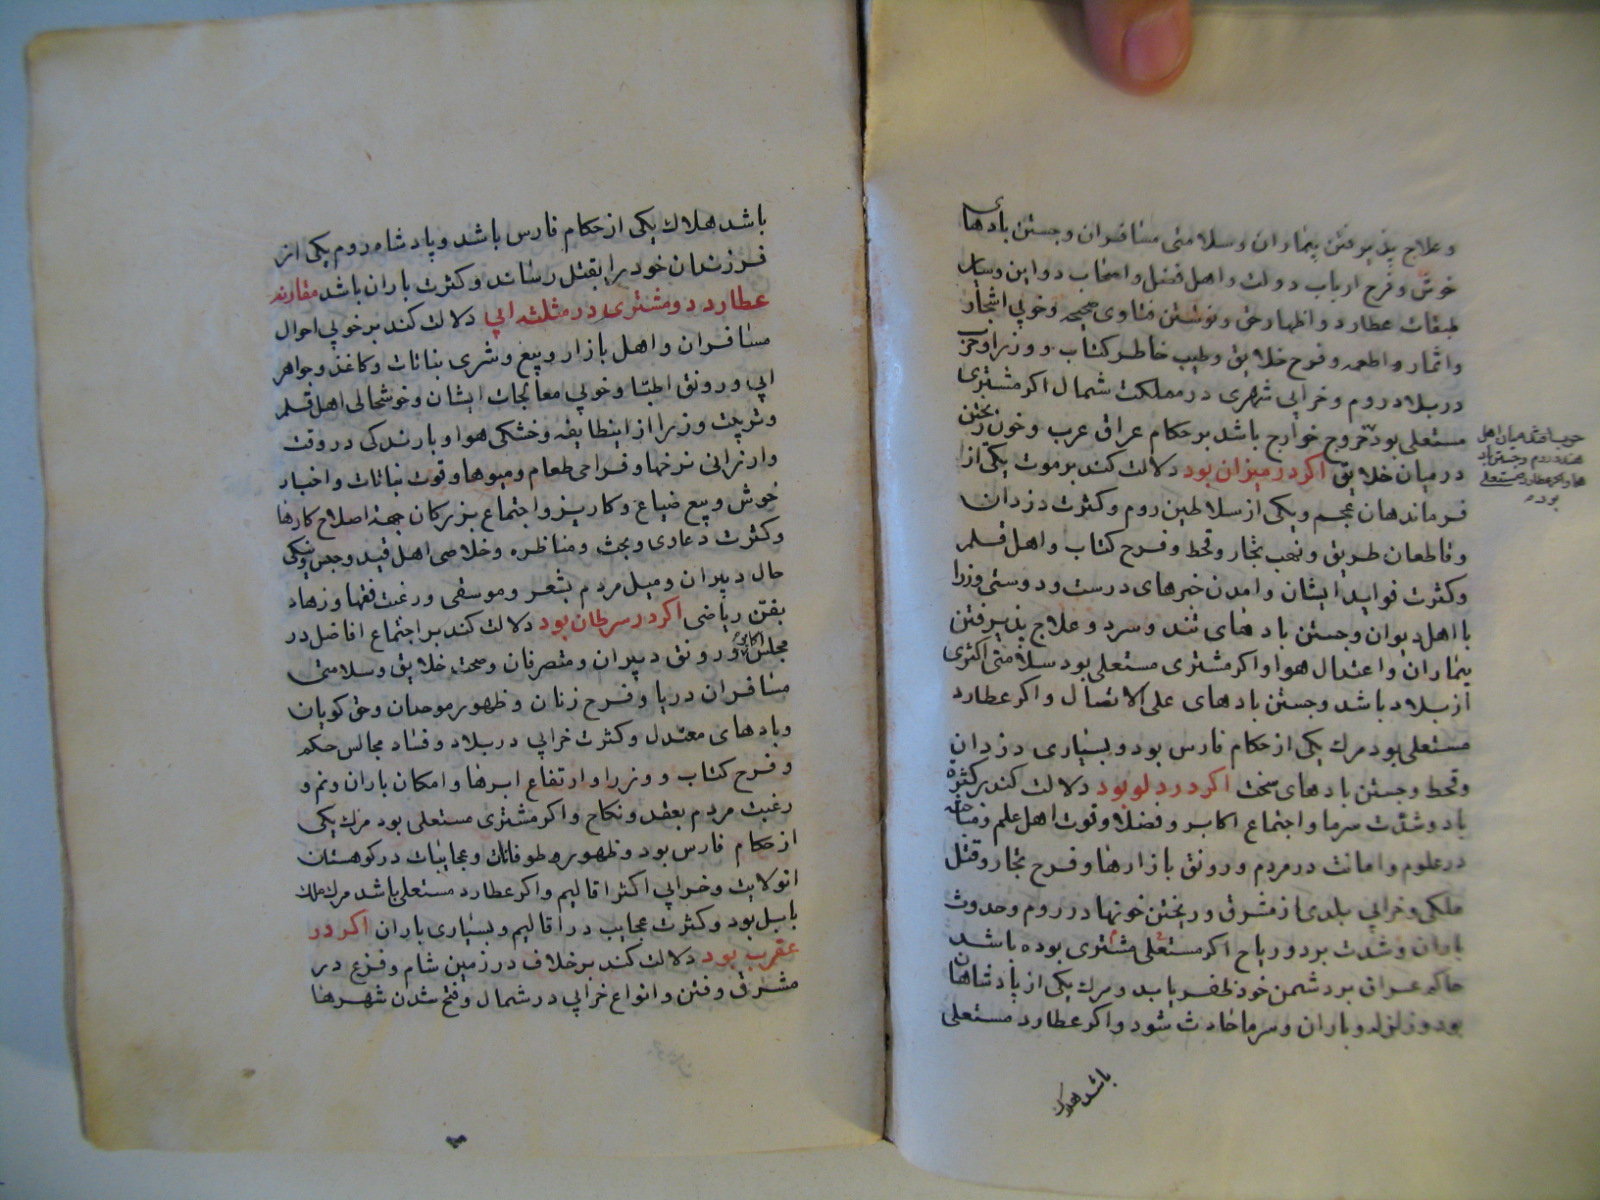 و علاج پذیرفتن بیماران و سلامتی مسافران و جستن بادهای
خوش و فرح ارباب دولت و اهل فضل و اصحاب دواوین و سایر
طبقات عطارد و اظهار حق و نوشتن فتاوی صحیحه و خوبی اشجار
و اثمار و اطعمه و فرح خلایق و طیب خاطر کتاب و وزرا و حرب
در بلاد روم و خرابی شهری در مملکت شمال اکر مشتری
مستعلی بود خروج خوارج باشد بر حکام عراق عرب و خون ریختن
در میان خلایق اکر در میزان بود دلالت کند بر موت یکی از
فرماندهان عجم و یکی از سلاطین روم و کثرت دزدان
و قاطعان طریق و نهب تجار و قحط و فرح کتاب و اهل قلم
و کثرت فواید ایشان و امدن خبرهای درست و دوستی وزرا
با اهل دیوان و جستن بادهای تند و سرد و علاج پذیرفتن
بیماران و اعتدال هوا و اکر مشتری مستعلی بود سلامتی اکثری
از بلاد باشد و جستن بادهای علی الاتصال و اکر عطارد
مستعلی بود مرک یکی از حکام فارس بود و بسیاری دزدان
و قحط و جستن بادهای سخت اکر در دلو بود دلالت کند بر کثرة
باد و شدت سرما و اجتماع اکابر و فضلا و قوت اهل علم و مباحثه
در علوم و امانت در مردم و رونق بازارها و فرح تجار و قتل
ملکی و خرابی بلدی از مشرق و ریختن خونها در روم و حدوث
باران و شدت برد و ریاح اکر مستعلی مشتری بوده باشد
حاکم عراق بر دشمن خود ظفر یابد و مرک یکی از پادشاهان
بود و زلزله و باران و سرما حادث شود و اکر عطارد مستعلی
باشد هلاک
میان اهل
هند و روم و جستن باد
عطارد مستعلی
بوده
باشد هلاک یکی از حکام فارس باشد و پادشاه روم یکی از
فرزندان خود را بقتل رساند و کثرت باران باشد مقارنه
عطارد و مشتری در مثلثه ابی دلالت کند بر خوبی احوال
مسافران و اهل بازار و بیع و شری نباتات و کاغذ و جواهر
ابی و رونق اطبا و خوبی معالجات ایشان و خوشحالی اهل قلم
و تربیت وزرا از اینطایفه و خشکی هوا و بارندکی در وقت
و ارزانی نرخها و فراخی طعام و میوها و قوت نباتات و اخبار
خوش و بیع ضیاع و کاریز و اجتماع بزرکان جهة اصلاح کارها
و کثرت دعاوی و بحث و مناظره و خلاصی اهل قید و حبس و نیکی
حال دبیران و میل مردم بشعر و موسیقی و رغبت فقها و زهاد
بفن ریاضی اکر در سرطان بود دلالت کند بر اجتماع افاضل در
مجلس اکابر و رونق دبیران و متصرفان و صحت خلایق و سلامتی
مسافران دریا و فرح زنان و ظهور موحدان و حق کویان
و بادهای معتدل و کثرت خرابی در بلاد و فساد مجالس حکم
و فرح کتاب و وزرا و ارتفاع ابرها و امکان باران و نم و
رغبت مردم بعقد و نکاح و اکر مشتری مستعلی بود مرک یکی
از حکام فارس بود و ظهور طوفانات و عجایبات در کوهستان
انولایت و خرابی اکثر اقالیم و اکر عطارد مستعلی باشد مرک ملک
بابل بود و کثرت عجایب در اقالیم و بسیاری باران اکر در
عقرب بود دلالت کند بر خلاف در زمین شام و فزع در
مشرق و فتن و انواع خرابی در شمال و فتح شدن شهرها